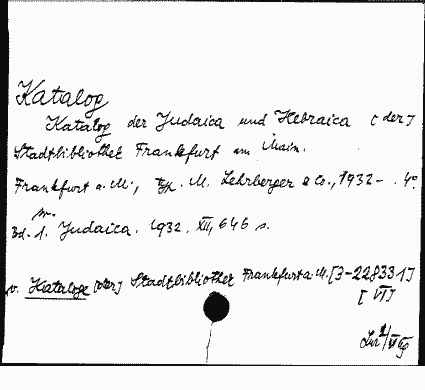 Katalog
Katalog der Judaica und Hebraica [der]
Stadtbibliothek Frankfurt am Main.
Frankfurt a. M., typ. M. Lehrberger & Co., 1932- . 4°.
Bd. 1. Judaica. 1932. XII, 646 s.
v. Kataloge [der] Stadtbibliothek Frankfurt a. M. [3-228331]
[VI]